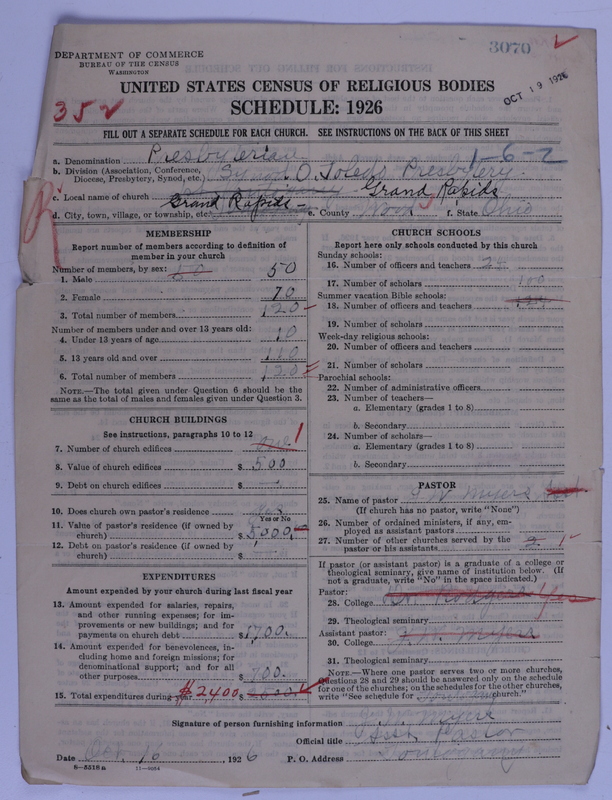 3070
DEPARTMENT OF COMMERCE
BUREAU OF THE CENSUS
WASHINGTON
OCT 19 1926
UNITED STATES CENSUS OF RELIGIOUS BODIES
SCHEDULE: 1926
352
FILL OUT A SEPARATE SCHEDULE FOR EACH CHURCH. SEE INSTRUCTIONS ON THE BACK OF THIS SHEET
a. Denomination Presbyterian 1-6-2
b. Division (Association, Conference, Diocese, Presbytery, Synod, etc.) O. Toledo Presbytery
c. Local name of church Grand Rapids
d. City, town, village, or township, etc. Grand Rapids e. County Wood f. State Ohio
MEMBERSHIP
Report number of members according to definition of member in your church
Number of members, by sex:
1. Male 50
2. Female 70
3. Total number of members 120
Number of members under and over 13 years old:
4. Under 13 years of age 10
5. 13 years old and over 110
6. Total number of members 120
NOTE.—The total given under Question 6 should be the same as the total of males and females given under Question 3.
CHURCH BUILDINGS
See instructions, paragraphs 10 to 12
7. Number of church edifices one 1
8. Value of church edifices $ 500
9. Debt on church edifices $
10. Does church own pastor's residence yes
Yes or No
11. Value of pastor's residence (if owned by church) $ 5000
12. Debt on pastor's residence (if owned by church) $
EXPENDITURES
Amount expended by your church during last fiscal year
13. Amount expended for salaries, repairs, and other running expenses; for improvements or new buildings; and for payments on church debt $ 1700.
14. Amount expended for benevolences, including home and foreign missions; for denominational support; and for all other purposes $ 700.
15. Total expenditures during year $2400
CHURCH SCHOOLS
Report here only schools conducted by this church
Sunday schools:
16. Number of officers and teachers
17. Number of scholars 100
Summer vacation Bible schools:
18. Number of officers and teachers
19. Number of scholars
Week-day religious schools:
20. Number of officers and teachers
21. Number of scholars
Parochial schools:
22. Number of administrative officers
23. Number of teachers—
a. Elementary (grades 1 to 8)
b. Secondary
24. Number of scholars—
a. Elementary (grades 1 to 8)
b. Secondary
PASTOR
25. Name of pastor J. W. Myers
(If church has no pastor, write "None")
26. Number of ordained ministers, if any, employed as assistant pastors
27. Number of other churches served by the pastor or his assistants 1
If pastor (or assistant pastor) is a graduate of a college or theological seminary, give name of institution below. (If not a graduate, write "No" in the space indicated.)
Pastor:
28. College Yes
29. Theological seminary
Assistant pastor:
30. College J. W. Myers
31. Theological seminary
NOTE.—Where one pastor serves two or more churches, questions 28 and 29 should be answered only on the schedule for one of the churches; on the schedules for the other churches, write "See schedule for church."
Signature of person furnishing information
Official title Pastor
Date Oct. 16, 1926 P. O. Address Tontogany
8-5318a 11-9054